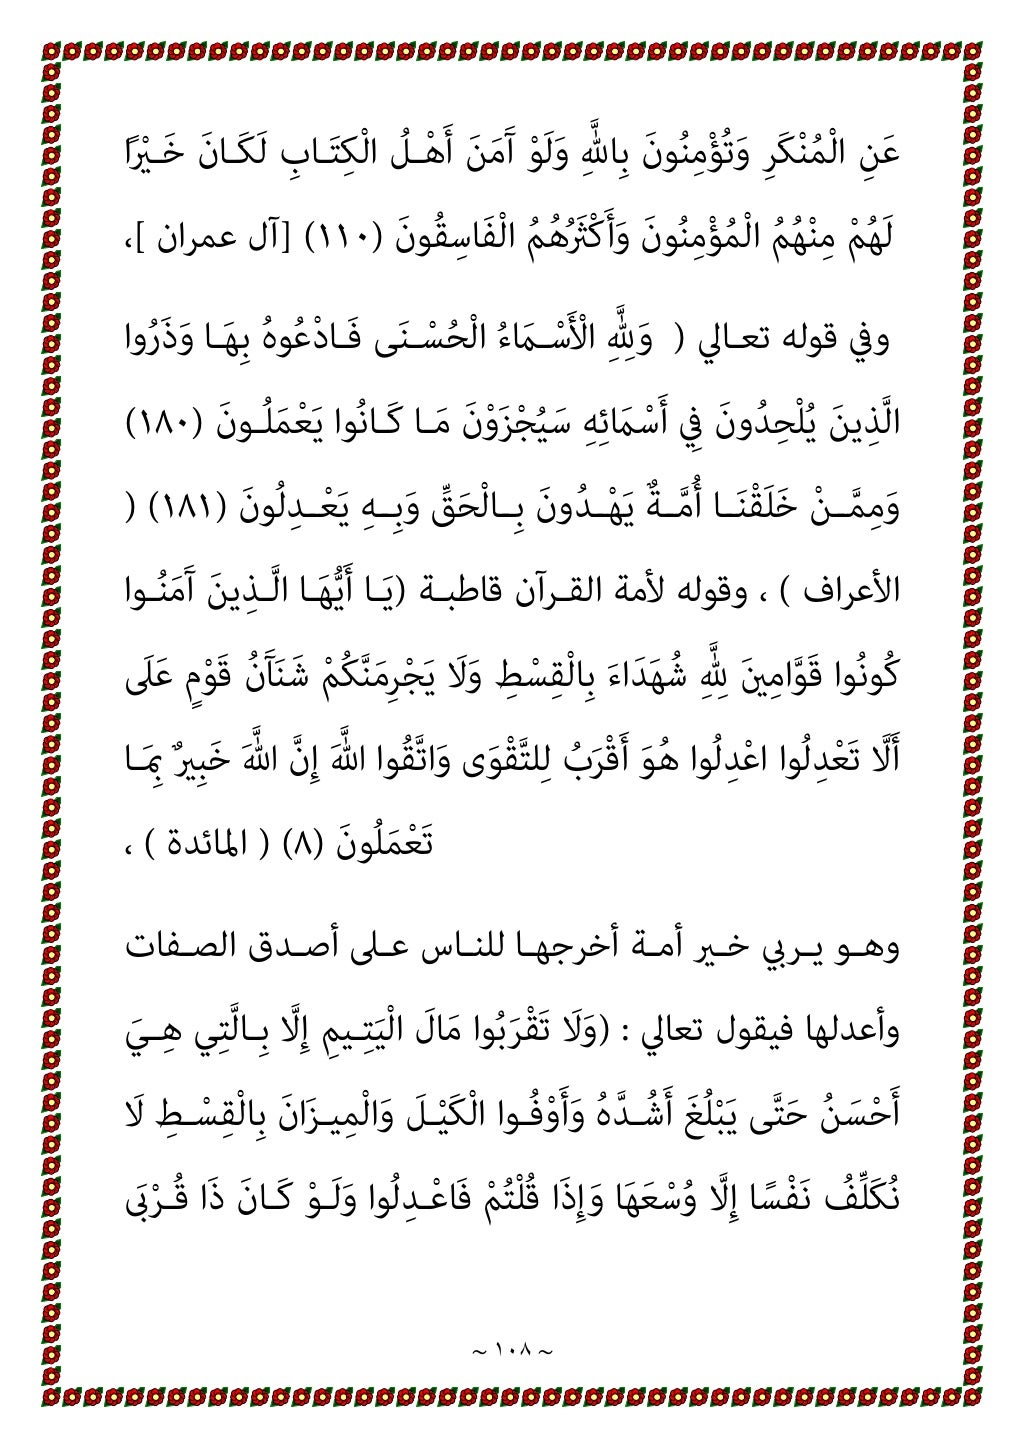 عَنِ الْمُنْكَرِ وَتُؤْمِنُونَ بِاللَّهِ وَلَوْ آَمَنَ أَهْـلُ الْكِتَـابِ لَكَـانَ خَـيْرًا
لَهُمْ مِنْهُمُ الْمُؤْمِنُونَ وَأَكْثَرُهُمُ الْفَاسِقُونَ (١١٠) [آل عمران ]،
وفي قوله تعـالي ( وَلِلَّهِ الْأَسْـمَاءُ الْحُسْـنَى فَـادْعُوهُ بِهَـا وَذَرُوا
الَّذِينَ يُلْحِدُونَ فِي أَسْمَائِهِ سَيُجْزَوْنَ مَـا كَـانُوا يَعْمَلُـونَ (١٨٠)
وَمِمَّــنْ خَلَقْنَــا أُمَّــةٌ يَهْــدُونَ بِــالْحَقِّ وَبِــهِ يَعْــدِلُونَ (١٨١) (
الأعراف ) ، وقوله لأمة القـرآن قاطبـة (يَـا أَيُّهَـا الَّـذِينَ آَمَنُـوا
كُونُوا قَوَّامِينَ لِلَّهِ شُهَدَاءَ بِالْقِسْطِ وَلَا يَجْرِمَنَّكُمْ شَنَآَنُ قَوْمٍ عَلَى
أَلَّا تَعْدِلُوا اعْدِلُوا هُوَ أَقْرَبُ لِلتَّقْوَى وَاتَّقُوا اللَّهَ إِنَّ اللَّهَ خَبِيرٌ بِمَـا
تَعْمَلُونَ (٨) ( المائدة ) ،
وهـو يـربي خـير أمـة أخرجهـا للنـاس عـلى أصـدق الصـفات
وأعدلها فيقول تعالي : (وَلَا تَقْرَبُوا مَالَ الْيَتِـيمِ إِلَّا بِـالَّتِي هِـيَ
أَحْسَنُ حَتَّى يَبْلُغَ أَشُـدَّهُ وَأَوْفُـوا الْكَيْـلَ وَالْمِيـزَانَ بِالْقِسْـطِ لَا
نُكَلِّفُ نَفْسًا إِلَّا وُسْعَهَا وَإِذَا قُلْتُمْ فَاعْـدِلُوا وَلَـوْ كَـانَ ذَا قُـرْبَى
~ ١٠٨ ~